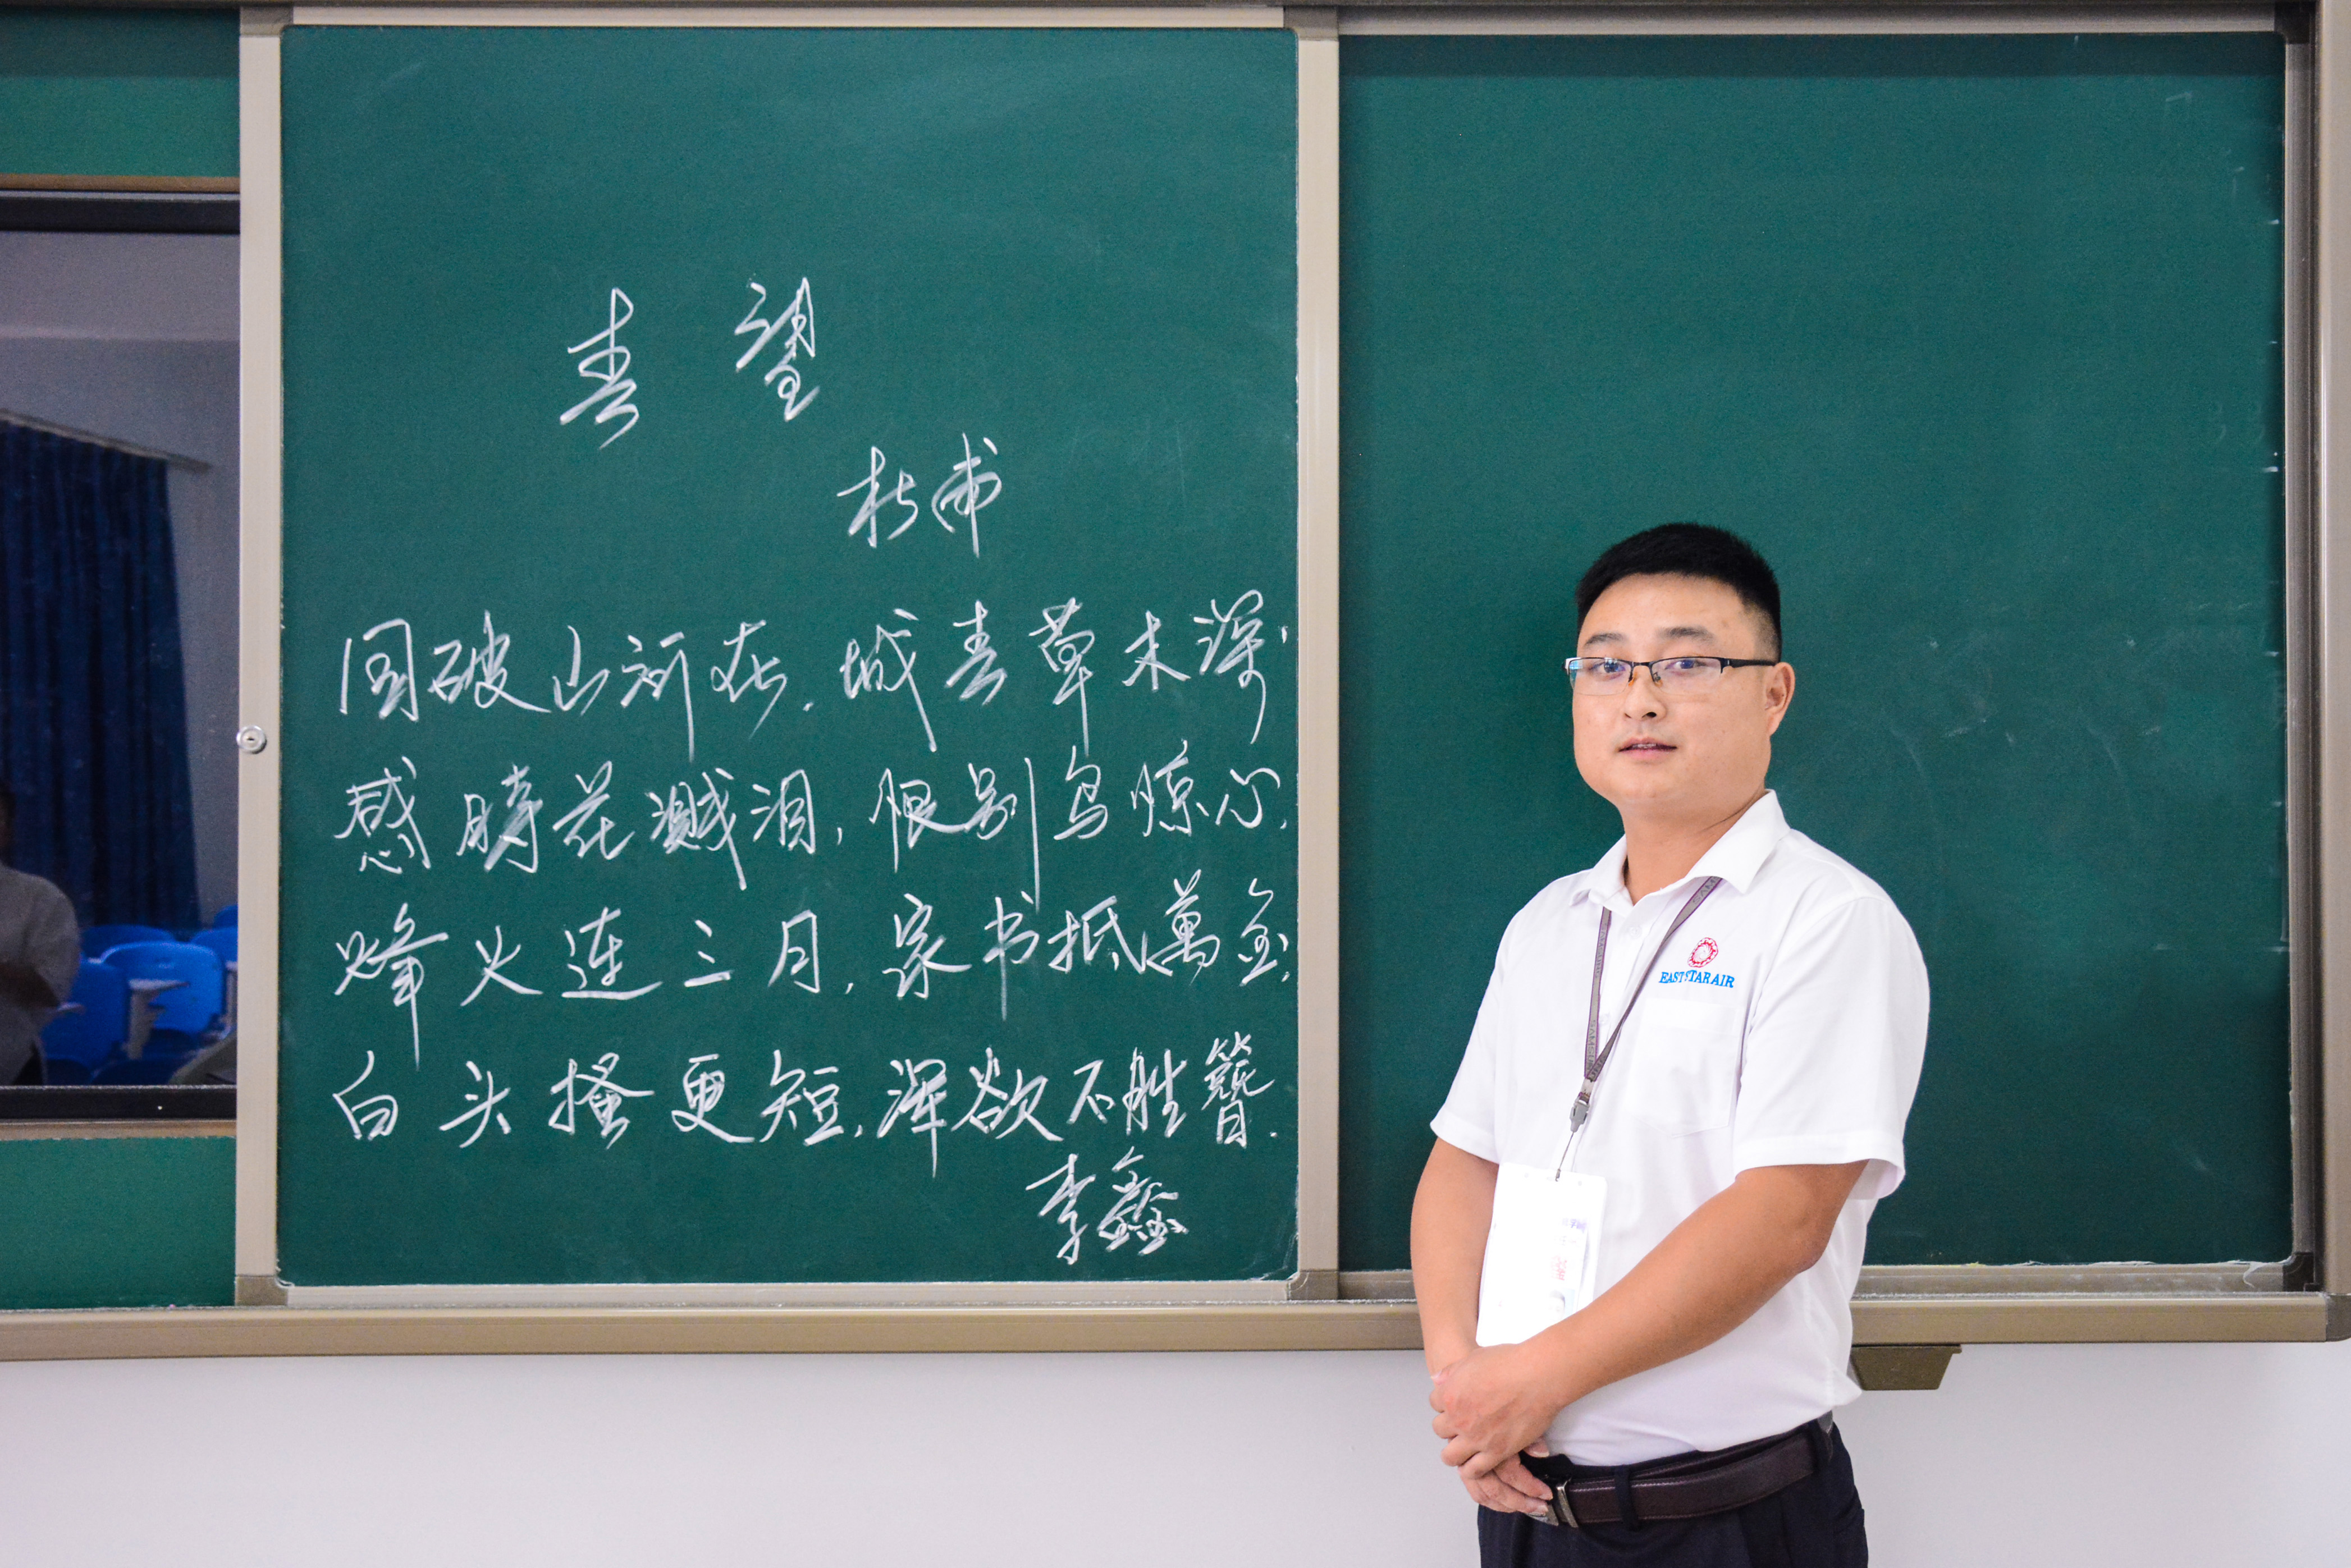 春望
杜甫
国破山河在，城春草木深，
感時花溅泪，恨别鸟惊心，
烽火连三月，家书抵萬金，
白头搔更短，浑欲不胜簪．
李鑫
EAST STAR AIR